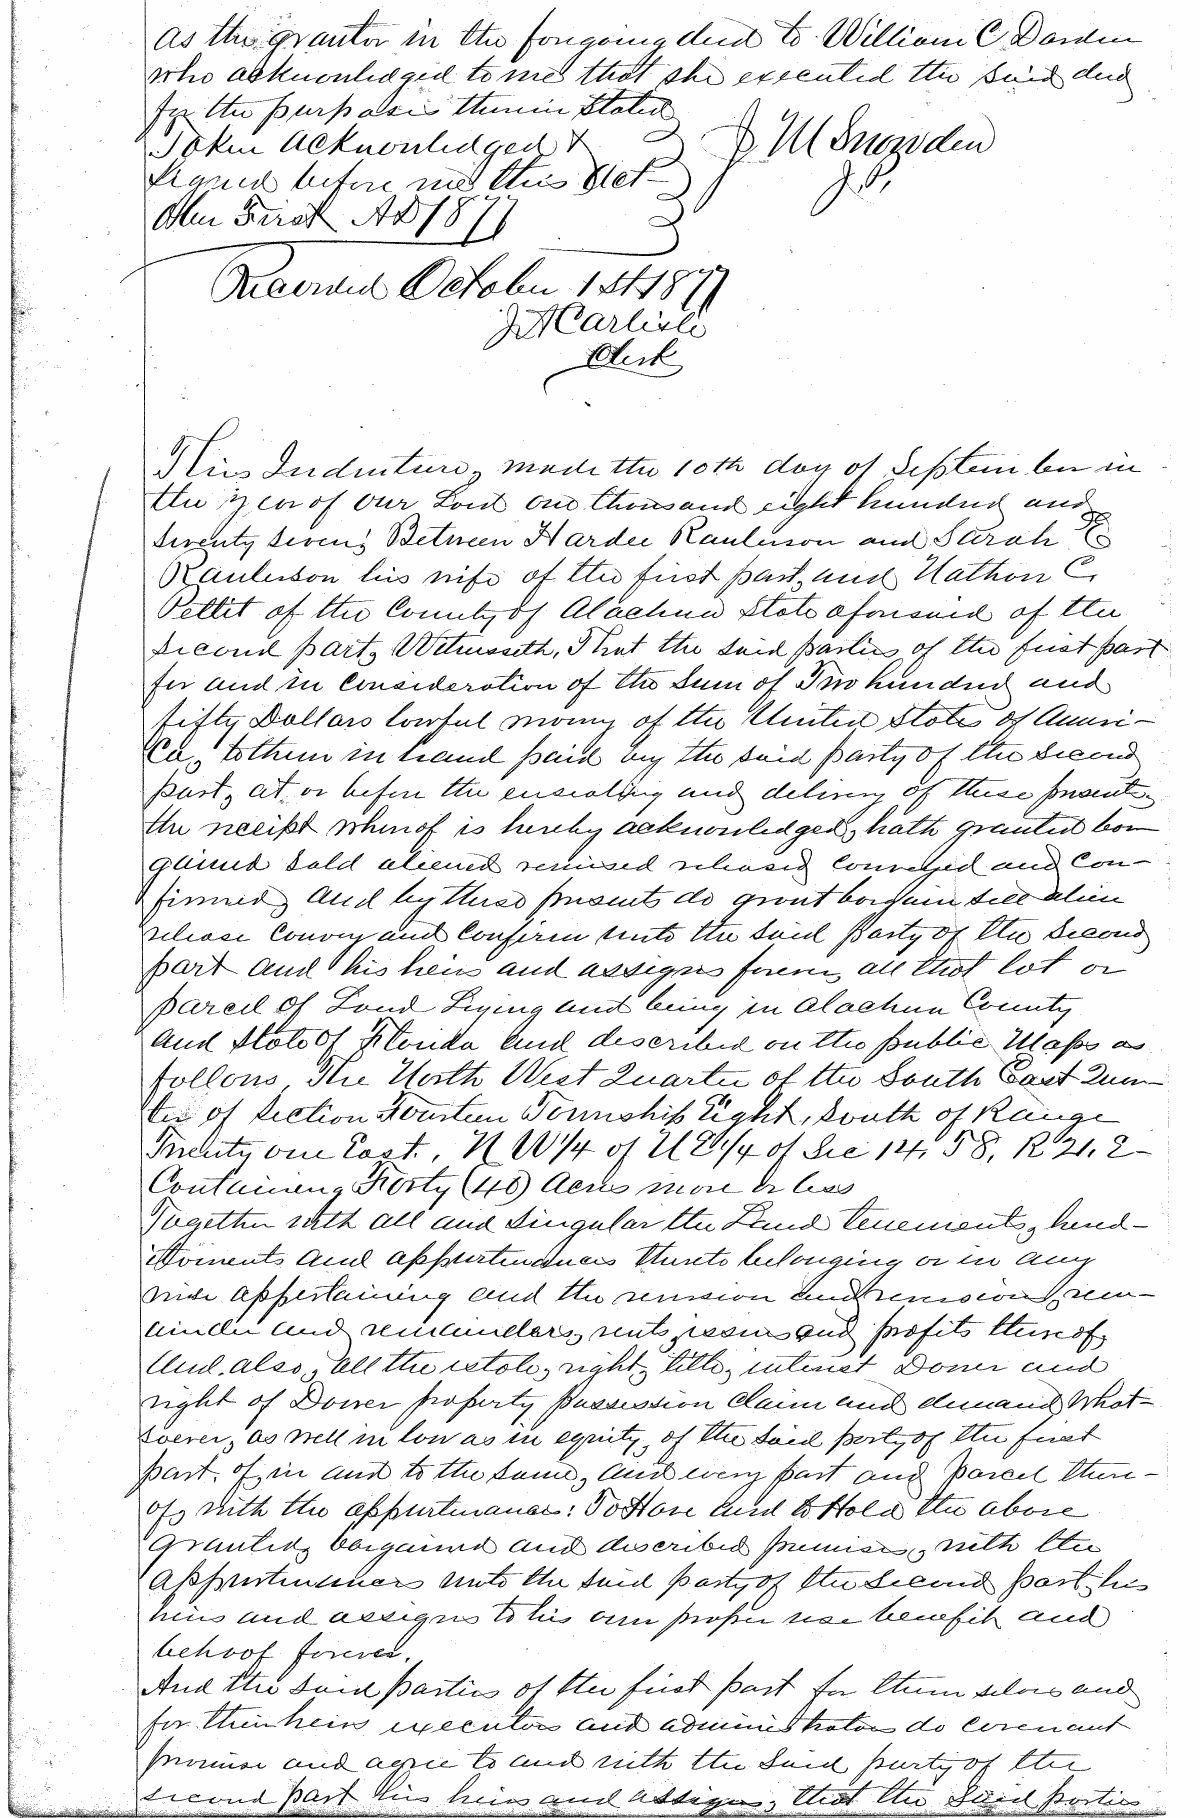 as the grantor in the foregoing deed to William C Darden
who acknowledged to me that she executed the said deed
for the purposes therein stated
Taken acknowledged &
signed before me this Oct-
ober First AD 1877
J M Snowden
J.P.
Recorded October 1st 1877
J A Carlisle
Clerk
This Indenture, made the 10th day of September in
the year of our Lord one thousand eight hundred and
seventy seven; Between Hardee Raulerson and Sarah E
Raulerson his wife of the first part, and Nathan C.
Pettit of the County of Alachua State aforesaid of the
second part, Witnesseth, That the said parties of the first part
for and in Consideration of the Sum of Two hundred and
fifty Dollars lawful money of the United States of Ameri-
ca, to them in hand paid by the said party of the second
part, at or before the ensealing and delivery of these presents
the receipt whereof is hereby acknowledged, hath granted bar
gained sold aliened remised released Conveyed and Con-
firmed, and by these presents do grant bargain sell alien
release Convey and Confirm unto the said party of the second
part and his heirs and assigns forever, all that lot or
parcel of Land Lying and being in Alachua County
and State of Florida and described on the public Maps as
follows, The North West Quarter of the South East Quar-
ter of Section Fourteen Township Eight, South of Range
Twenty one East., N W 1/4 of 1/4 of Sec 14, T 8, R 21, E
Containing Forty (40) Acres more or less
Together with all and singular the Land tenements, hered-
itaments and appurtenances thereto belonging or in any
wise appertaining and the reversion and reversions, rem-
ainder and remainders, rents, issues and profits thereof,
And also, all the estate, right, title, interest Dower and
right of Dower property possession claim and demand what-
soever, as well in law as in equity, of the said party of the first
part. of, in and to the same, and every part and parcel there-
of, with the appurtenances: To Have and to Hold the above
granted, bargained and described premises, with the
appurtenances unto the said party of the second part, his
heirs and assigns to his own proper use benefit and
behoof forever.
And the said parties of the first part for them selves and
for their heirs executors and administrators do covenant
promise and agree to and with the said party of the
second part his heirs and assigns, that the said parties